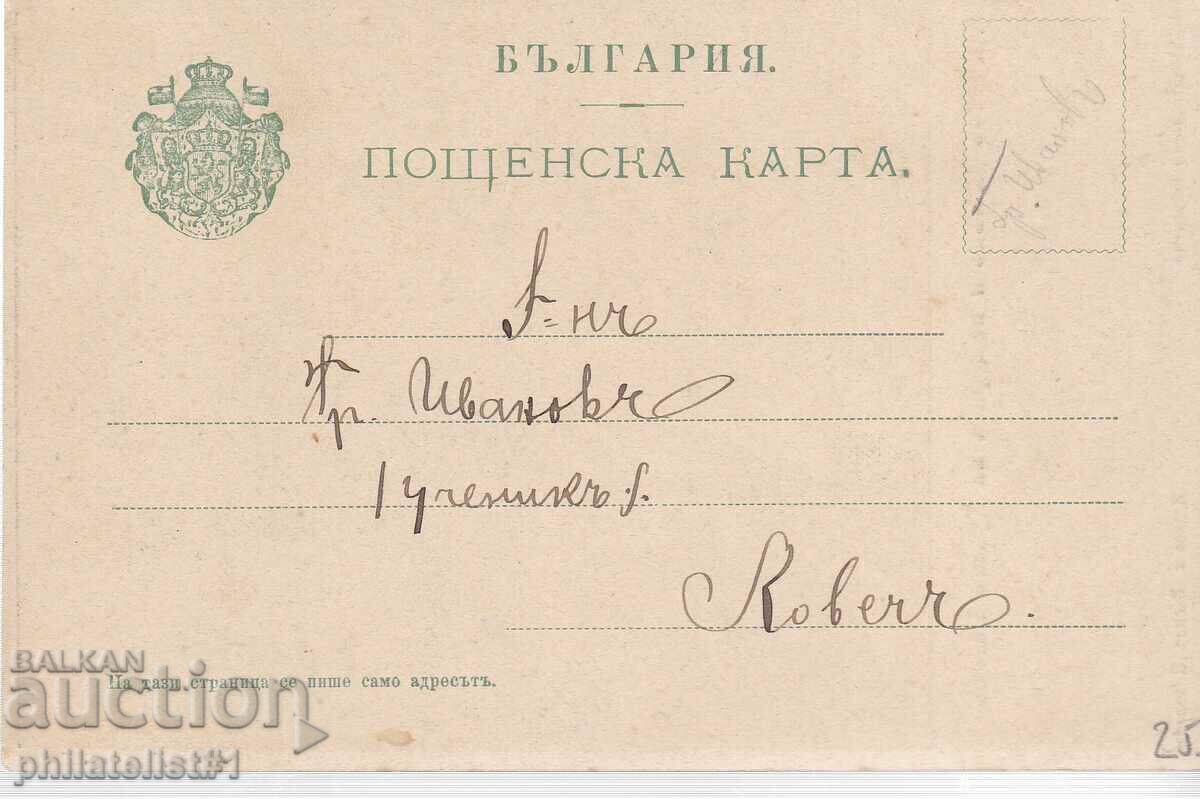 БЪЛГАРИЯ.
ПОЩЕНСКА КАРТА.
Гр. Ивановъ
Г=нъ
Хр. Ивановъ
/ученикъ/.
Ловечъ.
На тази страница се пише само адресътъ.
BALKAN
auction
philatelist#1
25.